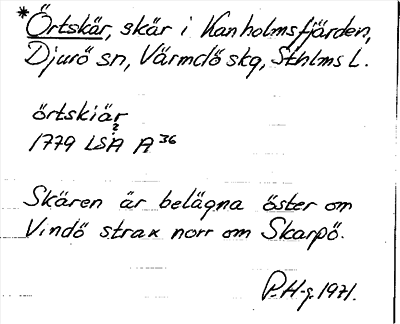 *Örtskär, skär i Kanholmsfjärden,
Djurö sn, Värmdö skg, Sthlms L.
örtskiär
?
1779 LSA A 36
Skären är belägna öster om
Vindö strax norr om Skarpö.
P.H-g. 1971.